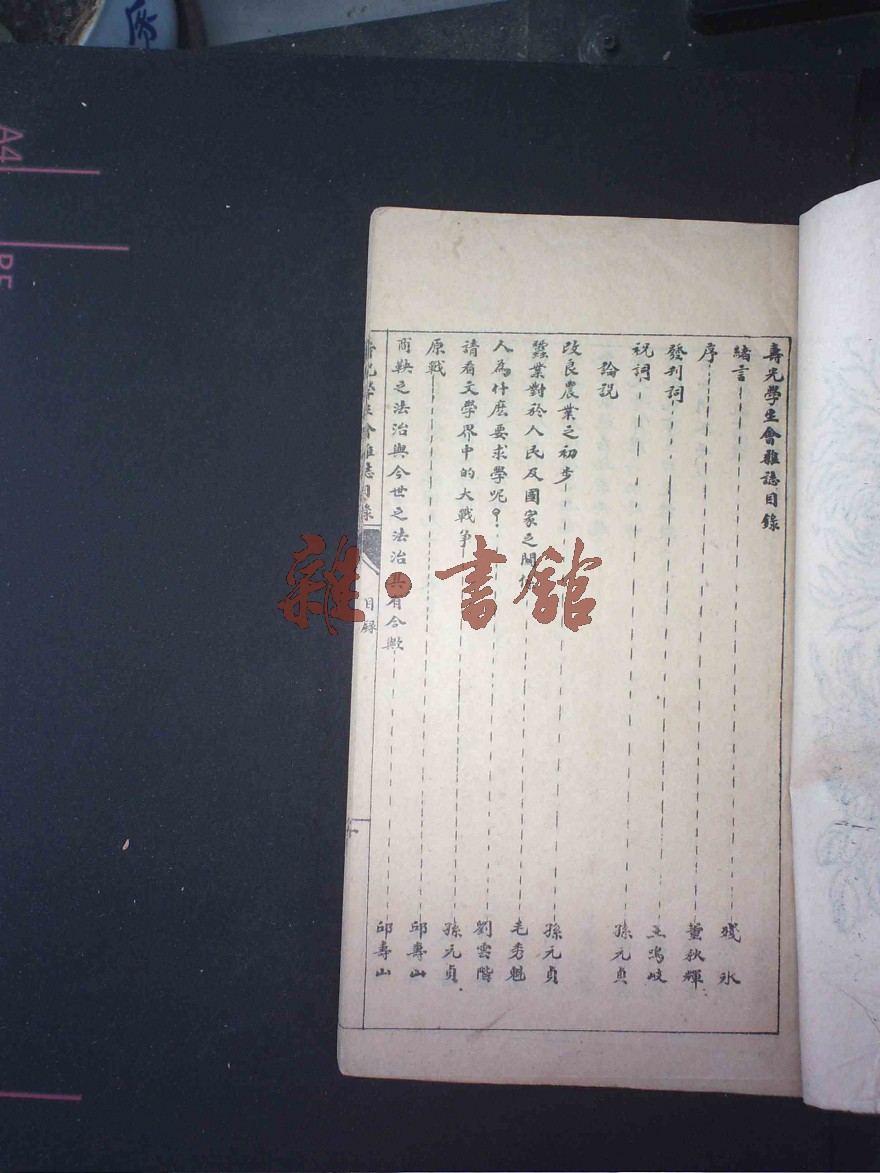 壽光學生會雜誌目錄
緒言 殘氷
序 董秋輝
發刊詞 王鳴岐
祝詞 孫元貞
論説
改良農業之初步 孫元貞
蠶業對於人民及國家之關係 毛秀魁
人為什麽要求學呢？ 劉雲階
請看文學界中的大戰爭 孫元貞
原戰 邱壽山
商鞅之法治與今世之法治具有合歟 邱壽山
壽光學生會雜誌目錄
目録
雜·書館
A4
B5